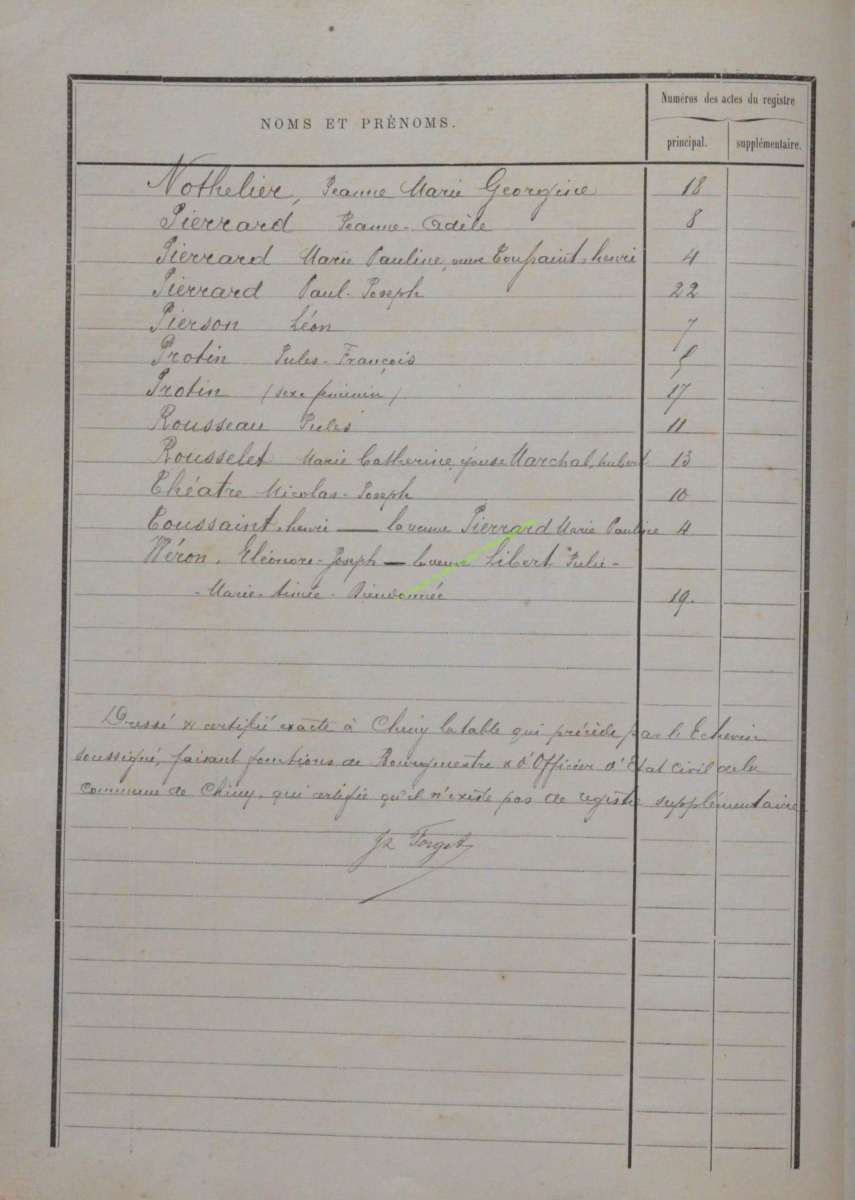 NOMS ET PRÉNOMS.
Numéros des actes du registre
principal. supplémentaire.
Nothelier, Jeanne Marie Georgine 18
Pierrard Jeanne-Adèle 8
Pierrard Marie Pauline, veuve Toussaint, henri 4
Pierrard Paul-Joseph 22
Pierson Léon 7
Protin Jules-François 5
Protin (sexe féminin) 17
Rousseau Jules 11
Rousselet Marie Catherine, épouse Marchal, hubert 13
Théatre Nicolas-Joseph 10
Toussaint, henri — la veuve Pierrard Marie Pauline 4
Wéron, Eléonore-Joseph — la veuve Libert Julie-
-Marie-Aimée-Dieudonnée 19.
Dressé & certifié exacte à Chiny la table qui précède par le Echevin
soussigné, faisant fonctions de Bourgmestre & d'Officier d'Etat Civil de la
commune de Chiny, qui certifie qu'il n'existe pas de registre supplémentaire
Forget